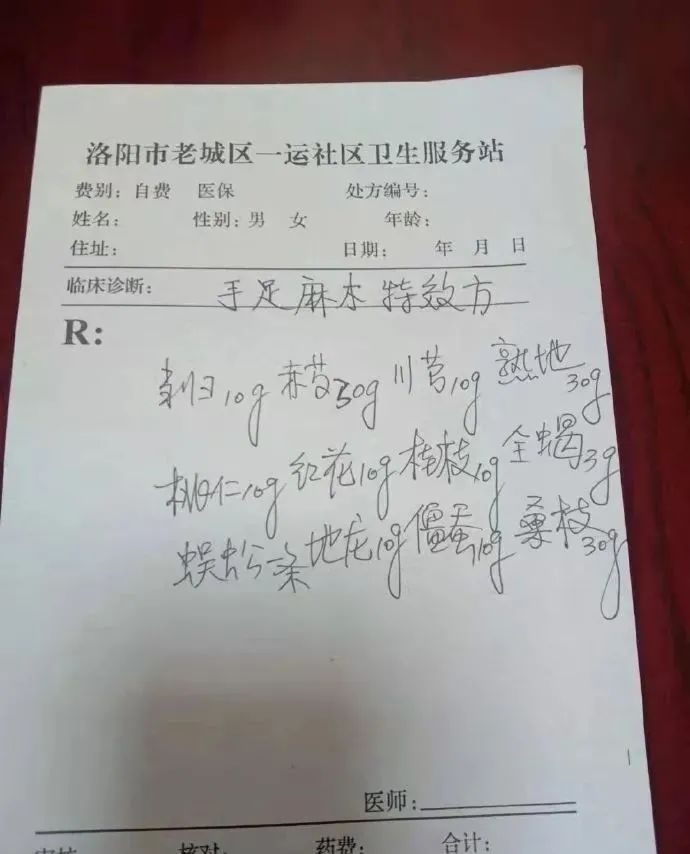 洛阳市老城区一运社区卫生服务站
费别: 自费 医保 处方编号:
姓名: 性别: 男 女 年龄:
住址: 日期: 年 月 日
临床诊断: 手足麻木特效方
R:
当归10g 赤芍30g 川芎10g 熟地30g
桃仁10g 红花10g 桂枝10g 全蝎3g
蜈蚣条 地龙10g 僵蚕10g 桑枝30g
医师:
核对: 药费: 合计: